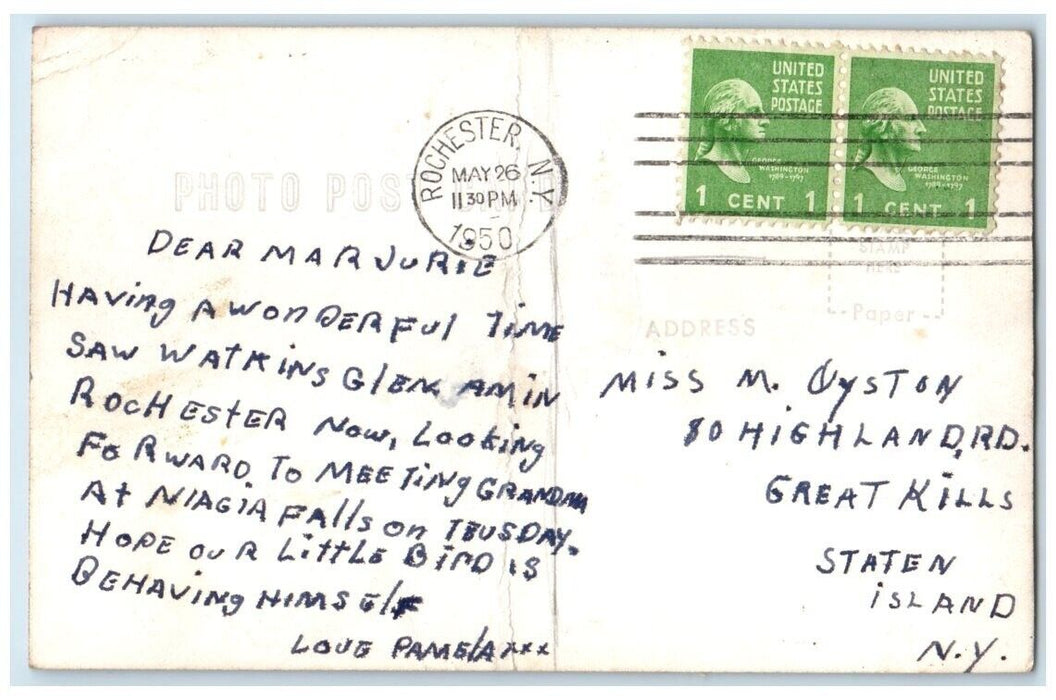 PHOTO POST CARD
ROCHESTER, N.Y.
MAY 26
11 30 PM
1950
UNITED
STATES
POSTAGE
GEORGE
WASHINGTON
1789-1797
1 CENT 1
UNITED
STATES
POSTAGE
GEORGE
WASHINGTON
1789-1797
1 CENT 1
STAMP
HERE
Paper
DEAR MARJURIE
HAVing A WONDERFul TIME
SAW WATKINS GlEN AM iN
ROCHESTER NOW, LOOKiNg
FORWARD TO MEETiNg GRANDMA
At NIAGIA FAlls on TEUSDAY.
HOPE OUR LittLE BIRD iS
BEHAViNg HiMSElF
LOVE PAMElA xxx
ADDRESS
Miss M. OYSTON
80 HiGHLAND, RD.
GREAT KiLLS
STATEN
iSLAND
N.Y.